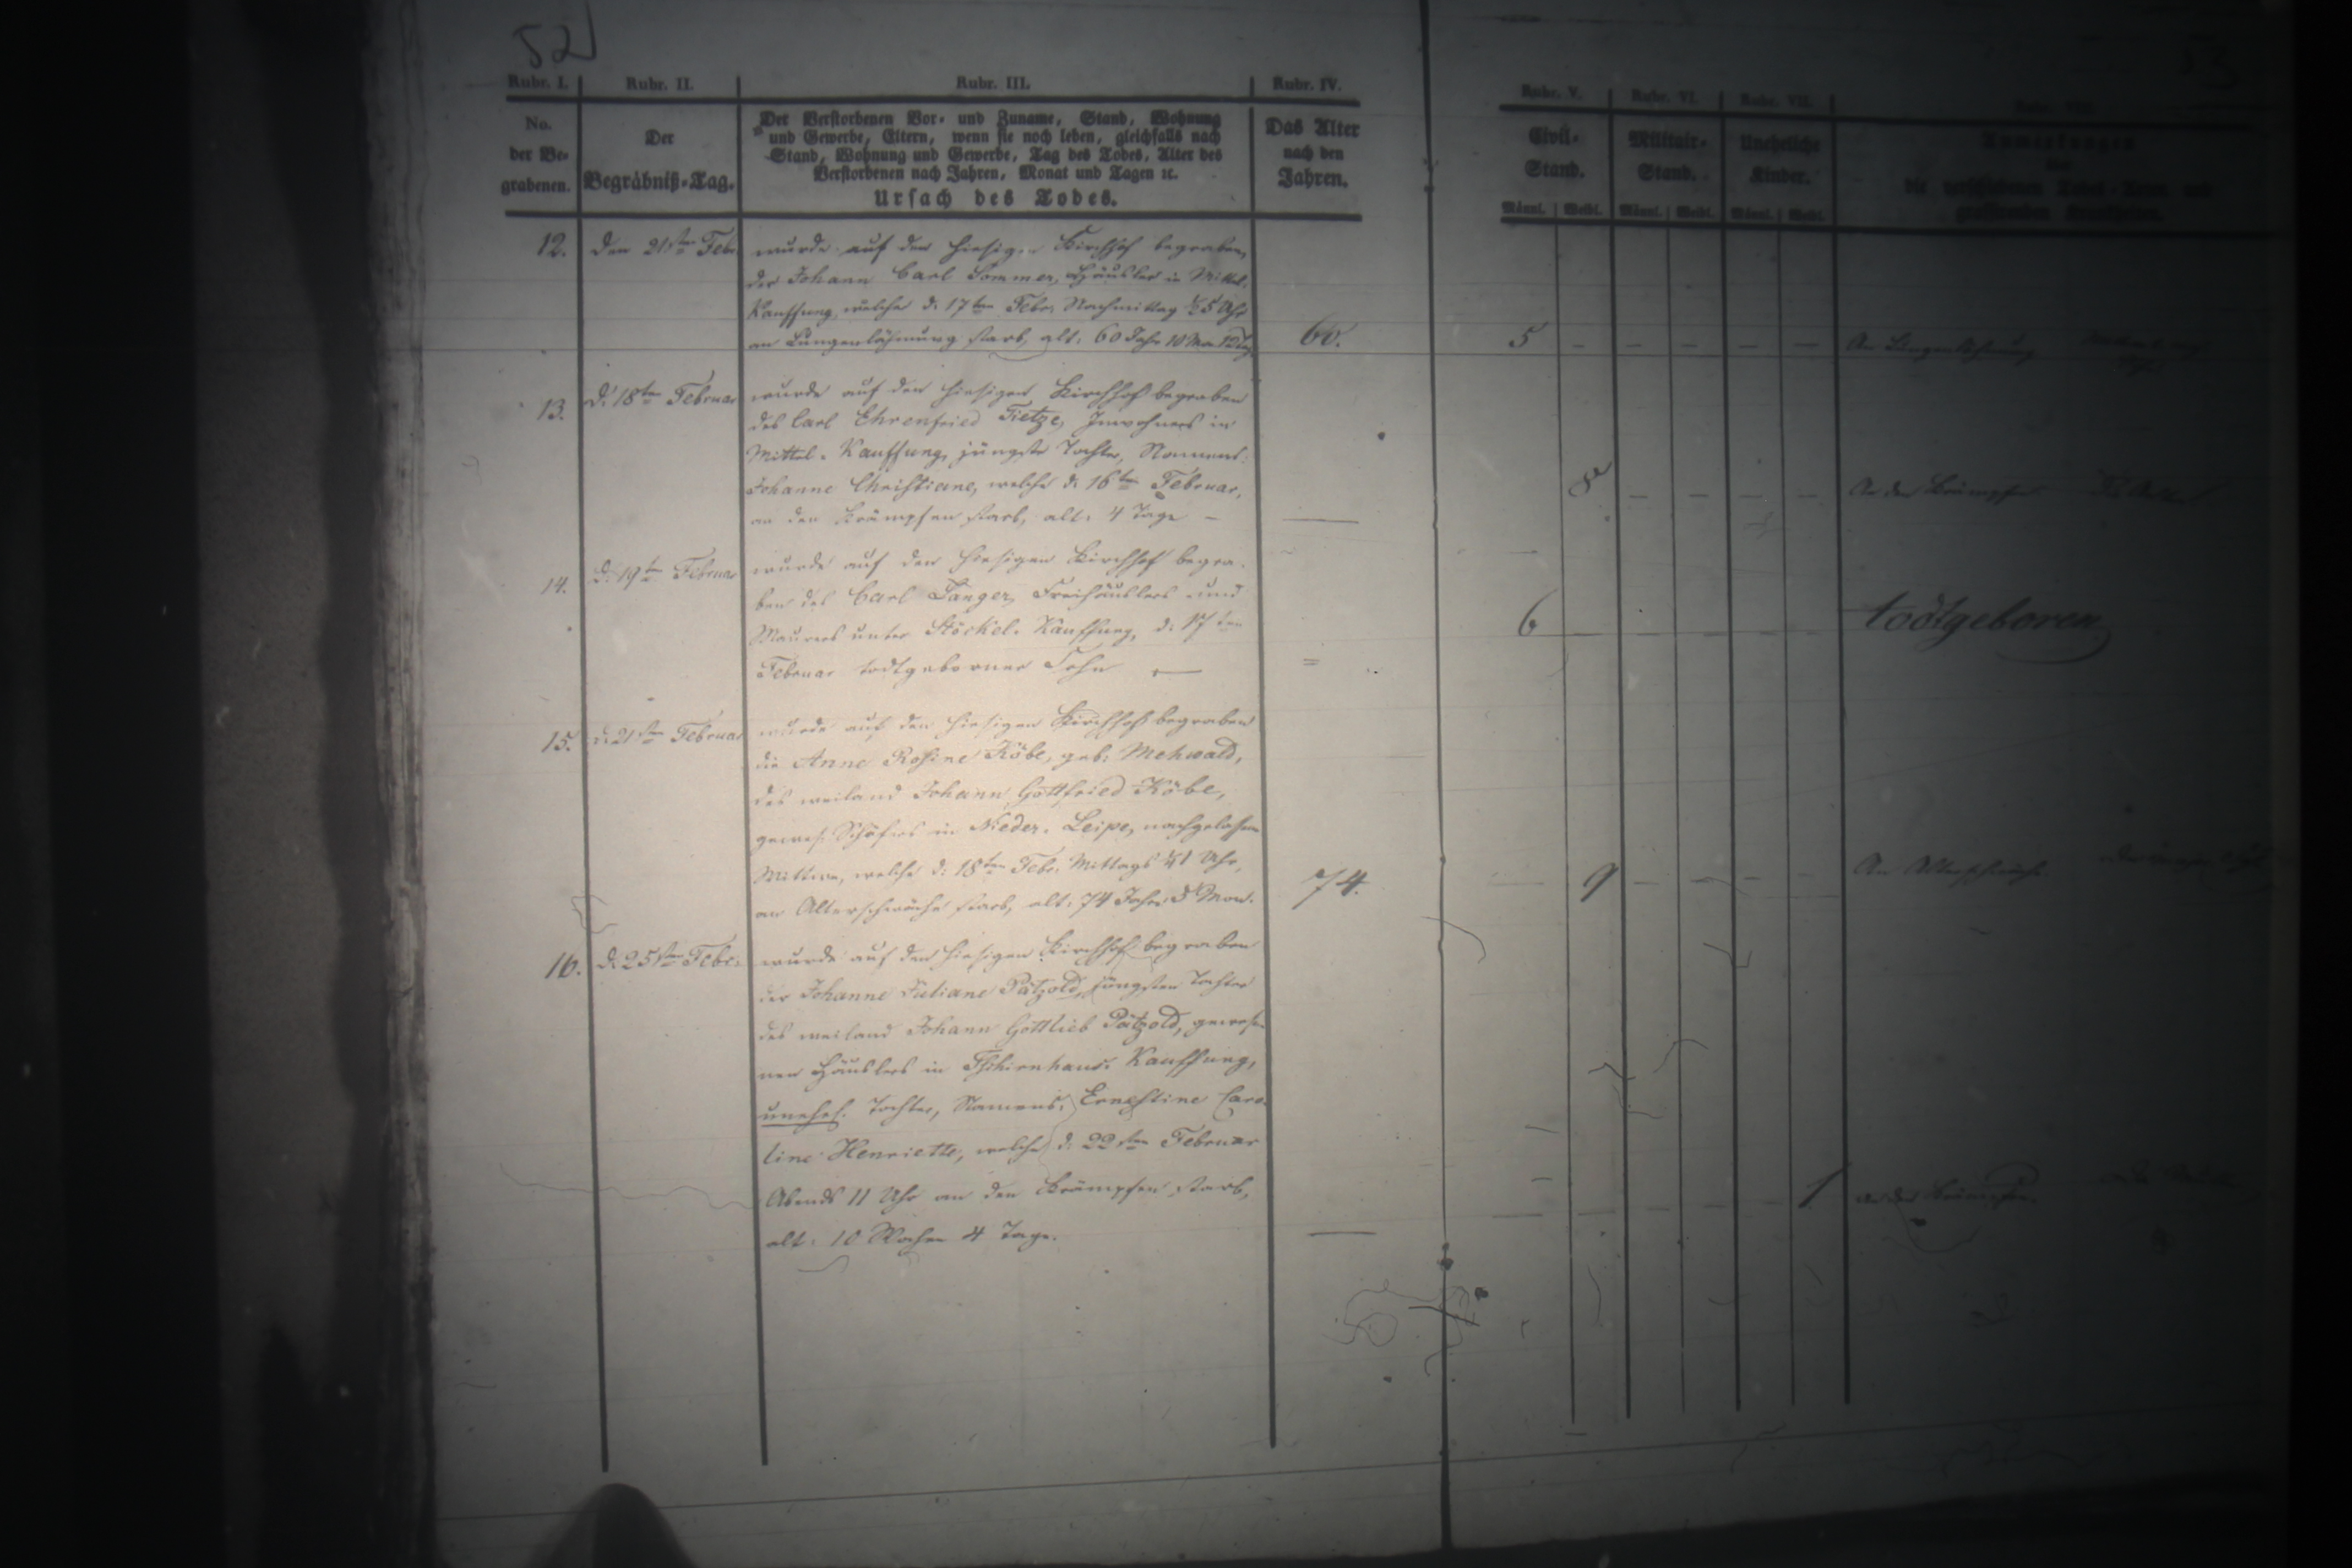 52
Rubr. I. Rubr. II. Rubr. III. Rubr. IV. Rubr. V. Rubr. VI. Rubr. VII.
No. der Be- grabenen.
Der Begräbniß-Tag.
Der Verstorbenen Vor- und Zuname, Stand, Wohnung
und Gewerbe, Eltern, wenn sie noch leben, gleichfalls nach
Stand, Wohnung und Gewerbe, Tag des Todes, Alter des
Verstorbenen nach Jahren, Monat und Tagen ꝛc.
Ursach des Todes.
Das Alter nach den Jahren.
Civil- Stand.
Militair- Stand.
Uneheliche Kinder.
Anmerkungen
Männl. Weibl. Männl. Weibl. Männl. Weibl.
12. den 21sten Febr. wurde auf den hiesigen Kirchhof begraben,
der Johann Carl Sommer, Häusler in Mittel-
Kauffung, welcher d. 17ten Febr. Nachmittag ½5 Uhr
an Lungenlähmung starb, alt: 60 Jahr 10 Mon. 12 Tg. 60. 5 An Lungenlähmung
13. d. 18ten Februar wurde auf den hiesigen Kirchhof begraben
des Carl Ehrenfried Tietze, Inwohners in
Mittel-Kauffung, jüngste Tochter, Namens:
Johanne Christiane, welche d. 16ten Februar, 8 An den Krämpfen
an den Krämpfen starb, alt: 4 Tage
14. d. 19ten Februar wurde auf den hiesigen Kirchhof begra-
ben des Carl Langer, Freihäuslers und
Maurers unter Stöckel-Kauffung, d. 17ten 6 todtgeboren.
Februar todtgeborner Sohn
15. d. 21sten Februar wurde auf den hiesigen Kirchhof begraben
die Anne Rosine Köbe, geb: Mehwald,
des weiland Johann Gottfried Köbe,
gewes. Schäfers in Nieder-Leipe, nachgelassene
Wittwe, welche d. 18ten Febr. Mittags ¼1 Uhr,
an Alterschwäche starb, alt: 74 Jahr 5 Mon. 74. 9 An Alterschwäche
16. d. 25sten Febr. wurde auf den hiesigen Kirchhof begraben
der Johanne Juliane Pätzold, jüngsten Tochter
des weiland Johann Gottlieb Pätzold, gewese-
nen Häuslers in Tschirnhaus-Kauffung,
unehel. Tochter, Namens: Ernestine Caro-
line Henriette, welche d. 22sten Februar
Abends 11 Uhr an den Krämpfen starb, 1 an den Krämpfen.
alt: 10 Wochen 4 Tage.